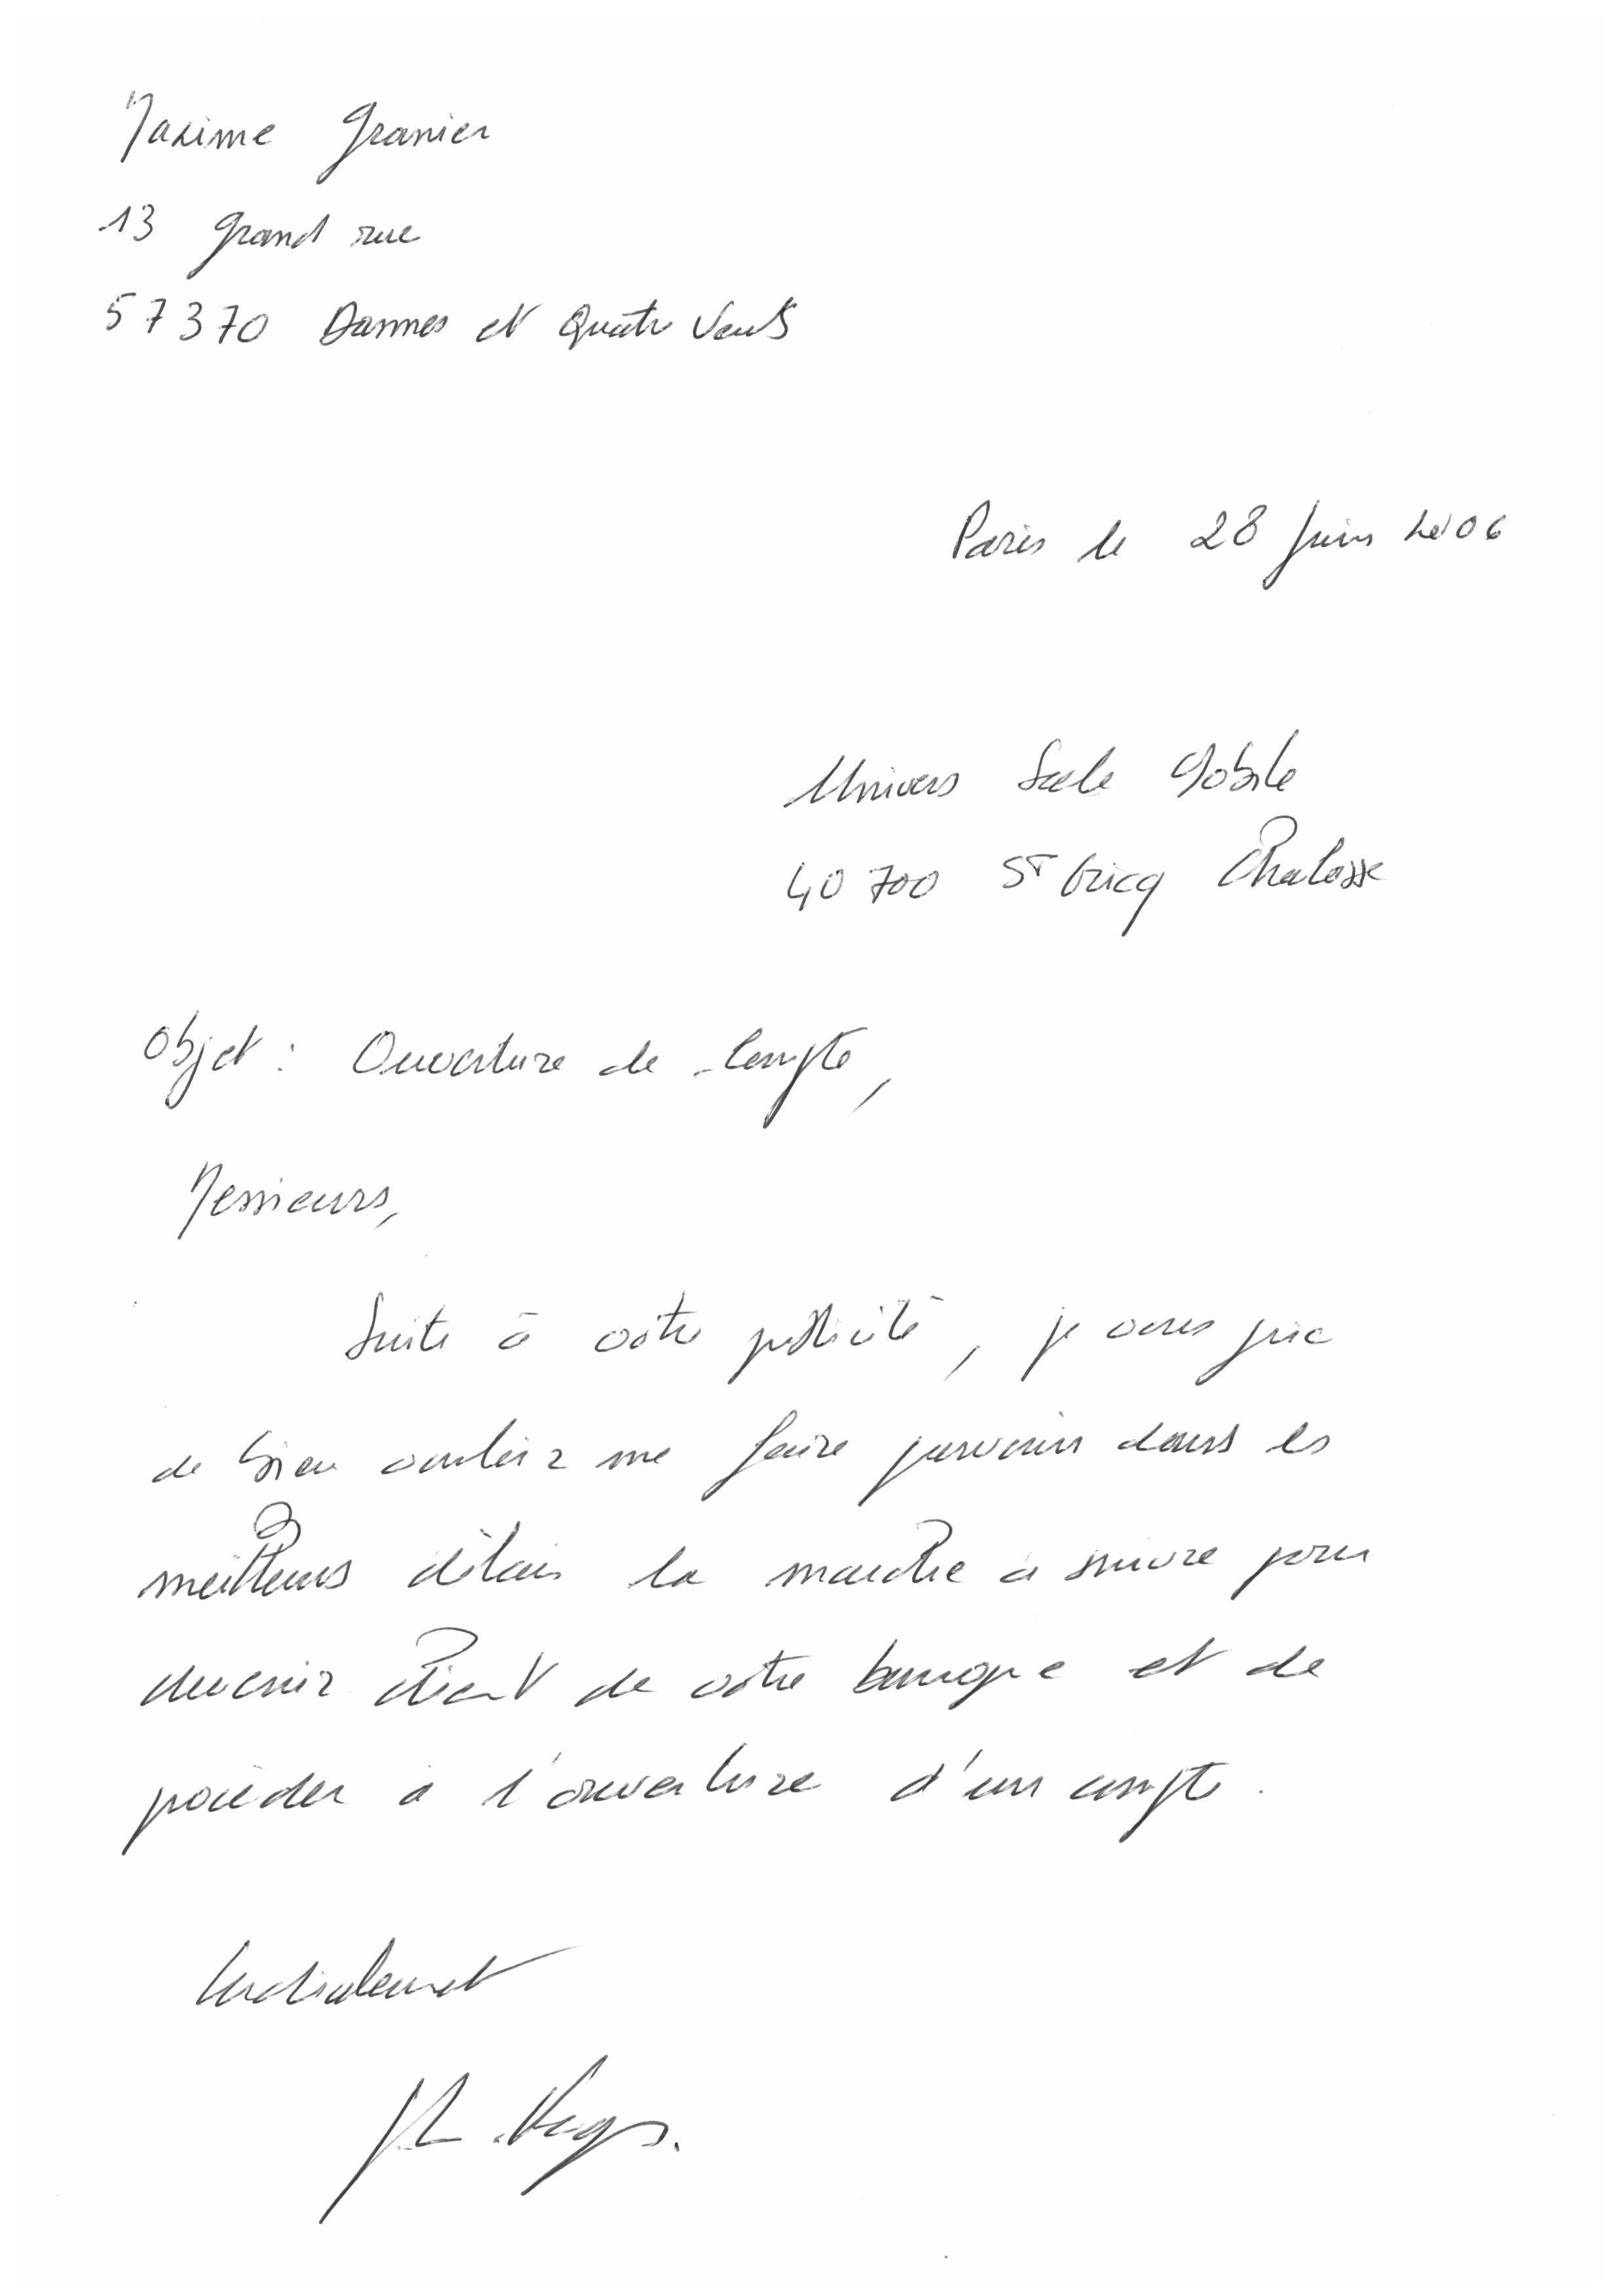 Maxime Granier
13 grand rue
57370 Dannes et Quatre Vents
Paris le 28 Juin 2006
Univers Sale Mobile
40700 St Cricq Chalosse
Objet : Ouverture de Compte,
Messieurs,
Suite à votre publicité, je vous prie
de bien vouloir me faire parvenir dans les
meilleurs délais la marche à suivre pour
devenir client de votre banque et de
procéder à l'ouverture d'un compte.
Cordialement